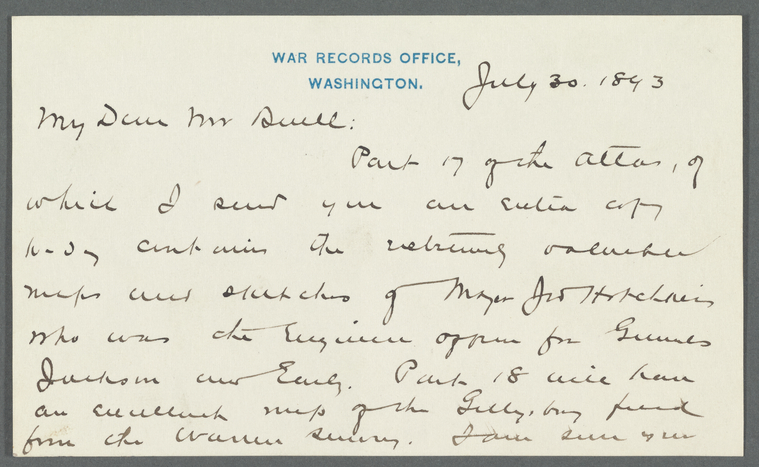 WAR RECORDS OFFICE,
WASHINGTON.
July 30. 1893
My Dear Mr Buell:
Part 17 of the Atlas, of
which I send you an extra copy
to-day contains the extremely valuable
maps and sketches of Major Jed Hotchkiss
who was the Engineer officer for Generals
Jackson and Early. Part 18 will have
an excellent map of the Gettysburg field
from the Warren survey. I am sure you